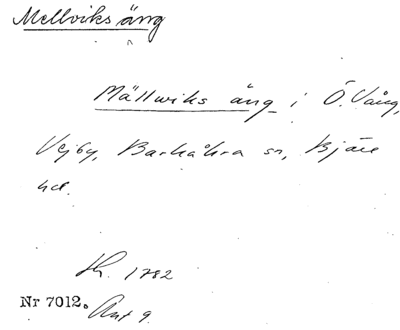 Mellviks äng
Mällwiks äng i Ö. Vång,
Vejby, Barkåkra sn, Bjäre
hd.
1782
Nr 7012.
Akt 9.